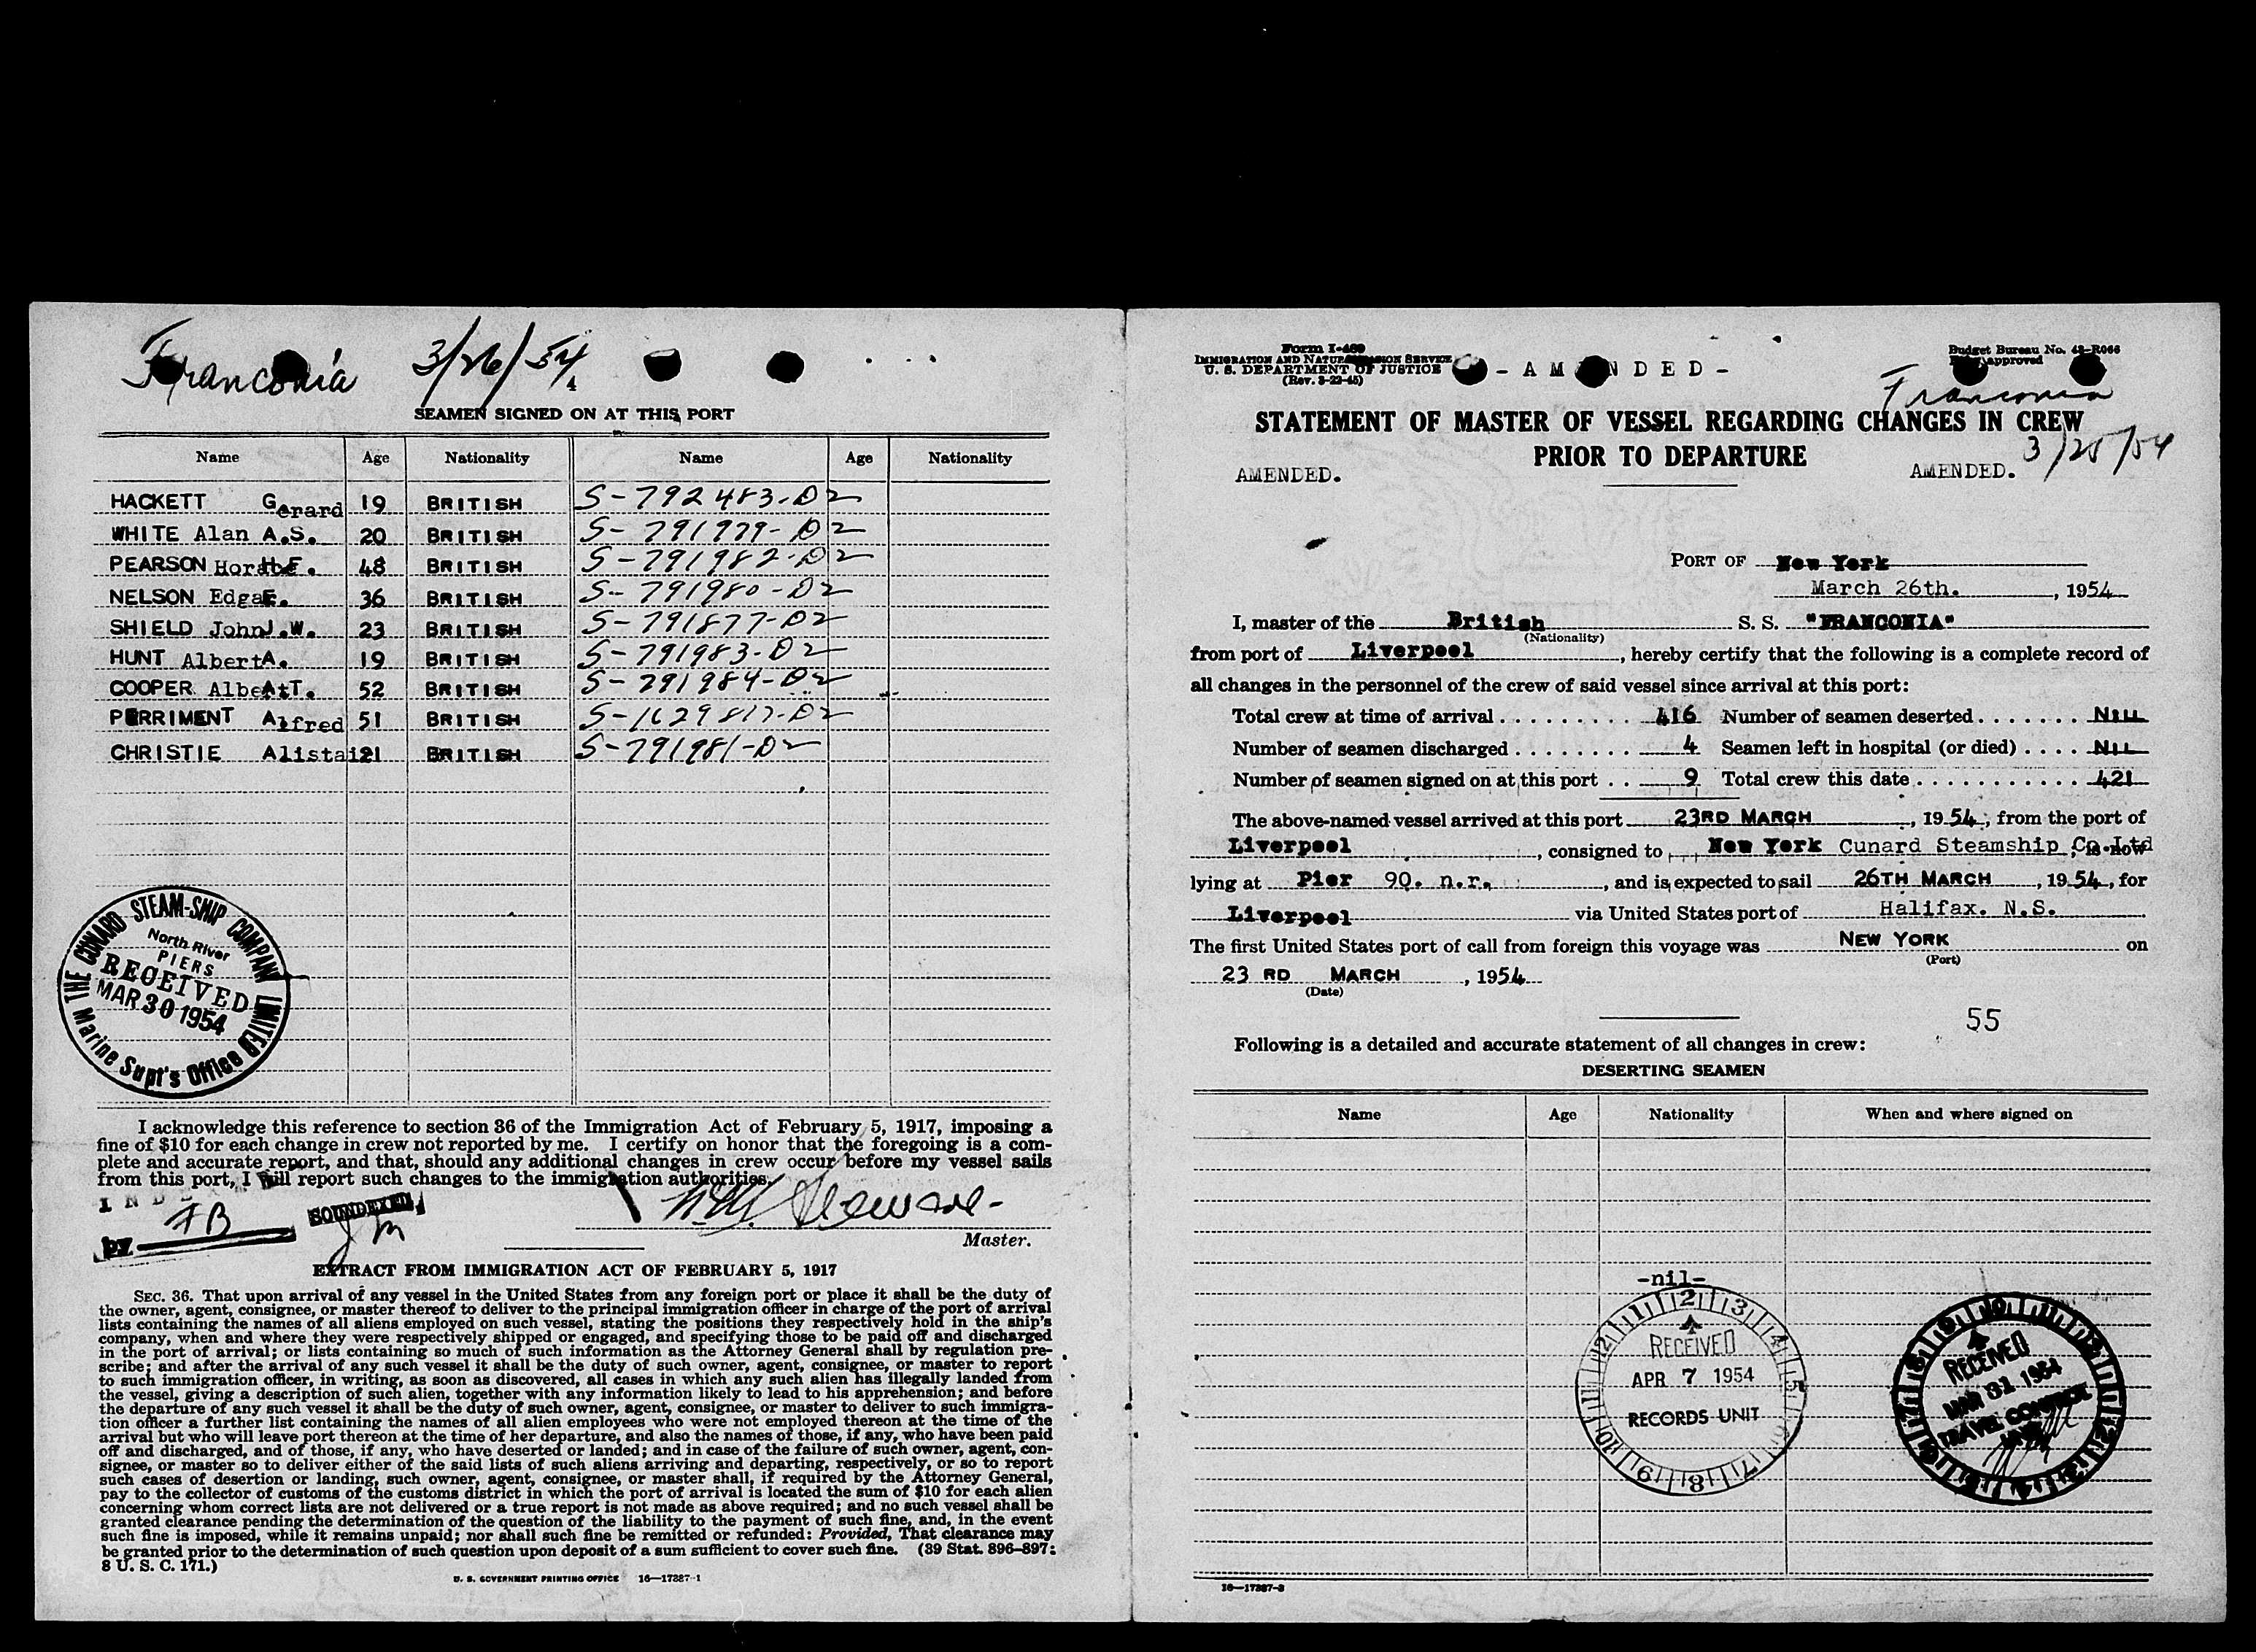 Franconia 3/26/54
SEAMEN SIGNED ON AT THIS PORT
Name Age Nationality Name Age Nationality
HACKETT Gerard 19 BRITISH S-792483-D2
WHITE Alan A.S. 20 BRITISH S-791979-D2
PEARSON H.F. 48 BRITISH S-791982-D2
NELSON E. 36 BRITISH S-791980-D2
SHIELD John J.W. 23 BRITISH S-791877-D2
HUNT Albert A. 19 BRITISH S-791983-D2
COOPER A.T. 52 BRITISH S-791984-D2
PERRIMENT Alfred 51 BRITISH S-1629817-D2
CHRISTIE Alistair 21 BRITISH S-791981-D2
THE CUNARD STEAM-SHIP COMPANY LIMITED
North River
PIERS
RECEIVED
MAR 30 1954
Marine Supt's Office
I acknowledge this reference to section 36 of the Immigration Act of February 5, 1917, imposing a
fine of $10 for each change in crew not reported by me. I certify on honor that the foregoing is a com-
plete and accurate report, and that, should any additional changes in crew occur before my vessel sails
from this port, I will report such changes to the immigration authorities.
INDE
by FB
SOUNDEXED
Jm
Master.
EXTRACT FROM IMMIGRATION ACT OF FEBRUARY 5, 1917
SEC. 36. That upon arrival of any vessel in the United States from any foreign port or place it shall be the duty of
the owner, agent, consignee, or master thereof to deliver to the principal immigration officer in charge of the port of arrival
lists containing the names of all aliens employed on such vessel, stating the positions they respectively hold in the ship's
company, when and where they were respectively shipped or engaged, and specifying those to be paid off and discharged
in the port of arrival; or lists containing so much of such information as the Attorney General shall by regulation pre-
scribe; and after the arrival of any such vessel it shall be the duty of such owner, agent, consignee, or master to report
to such immigration officer, in writing, as soon as discovered, all cases in which any such alien has illegally landed from
the vessel, giving a description of such alien, together with any information likely to lead to his apprehension; and before
the departure of any such vessel it shall be the duty of such owner, agent, consignee, or master to deliver to such immigra-
tion officer a further list containing the names of all alien employees who were not employed thereon at the time of the
arrival but who will leave port thereon at the time of her departure, and also the names of those, if any, who have been paid
off and discharged, and of those, if any, who have deserted or landed; and in case of the failure of such owner, agent, con-
signee, or master so to deliver either of the said lists of such aliens arriving and departing, respectively, or so to report
such cases of desertion or landing, such owner, agent, consignee, or master shall, if required by the Attorney General,
pay to the collector of customs of the customs district in which the port of arrival is located the sum of $10 for each alien
concerning whom correct lists are not delivered or a true report is not made as above required; and no such vessel shall be
granted clearance pending the determination of the question of the liability to the payment of such fine, and, in the event
such fine is imposed, while it remains unpaid; nor shall such fine be remitted or refunded: Provided, That clearance may
be granted prior to the determination of such question upon deposit of a sum sufficient to cover such fine. (39 Stat. 896-897;
8 U. S. C. 171.)
U. S. GOVERNMENT PRINTING OFFICE 16—17387-1
Form I-489
IMMIGRATION AND NATURALIZATION SERVICE
U. S. DEPARTMENT OF JUSTICE
(Rev. 3-22-45)
- AMENDED -
Budget Bureau No. 43-R066
approved
Franconia
STATEMENT OF MASTER OF VESSEL REGARDING CHANGES IN CREW
PRIOR TO DEPARTURE
AMENDED. AMENDED. 3/25/54
PORT OF New York
March 26th. , 1954
I, master of the British S. S. "FRANCONIA"
(Nationality)
from port of Liverpool, hereby certify that the following is a complete record of
all changes in the personnel of the crew of said vessel since arrival at this port:
Total crew at time of arrival . . . . . . . . . 416 Number of seamen deserted . . . . . . . NILL
Number of seamen discharged . . . . . . . . 4 Seamen left in hospital (or died) . . . . NIL
Number of seamen signed on at this port . . 9 Total crew this date . . . . . . . . . . . . 421
The above-named vessel arrived at this port 23RD MARCH, 1954, from the port of
Liverpool, consigned to New York Cunard Steamship Co. Ltd, is now
lying at Pier 90. n.r., and is expected to sail 26TH MARCH, 1954, for
Liverpool via United States port of Halifax. N.S.
The first United States port of call from foreign this voyage was NEW YORK on
(Port)
23 RD MARCH, 1954
(Date)
55
Following is a detailed and accurate statement of all changes in crew:
DESERTING SEAMEN
Name Age Nationality When and where signed on
-nil-
RECEIVED
APR 7 1954
RECORDS UNIT
RECEIVED
MAR 31 1954
TRAVEL CONTROL
16—17387-3